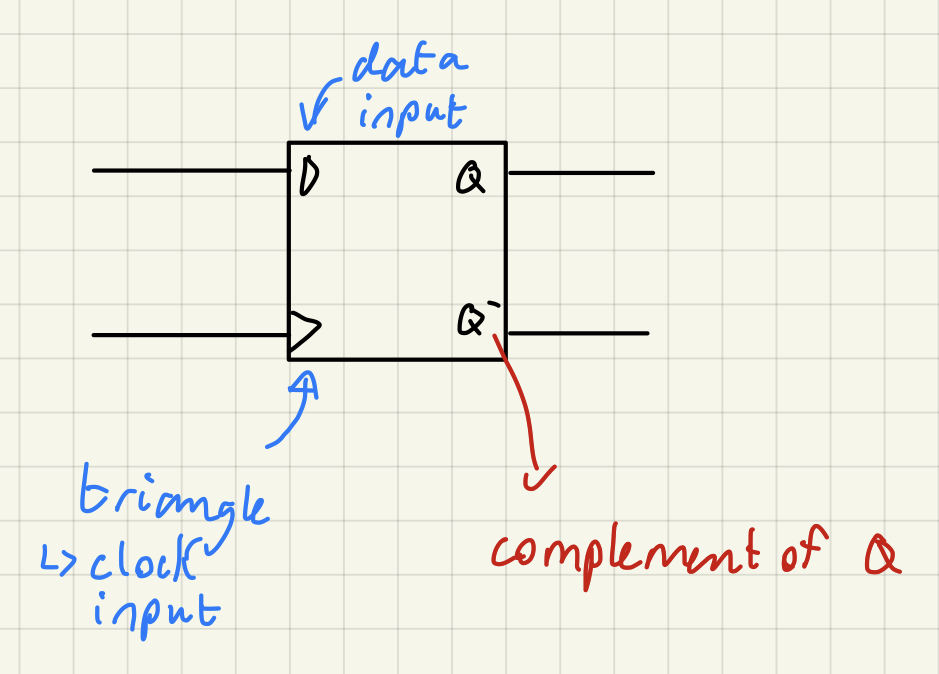 data
input
D
Q
Q̄
triangle
↳ clock
input
complement of Q